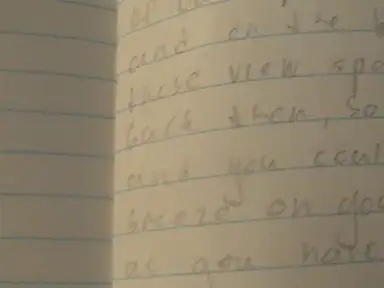 and on the
these view spo
back then, so
and you coul
on you
as you have